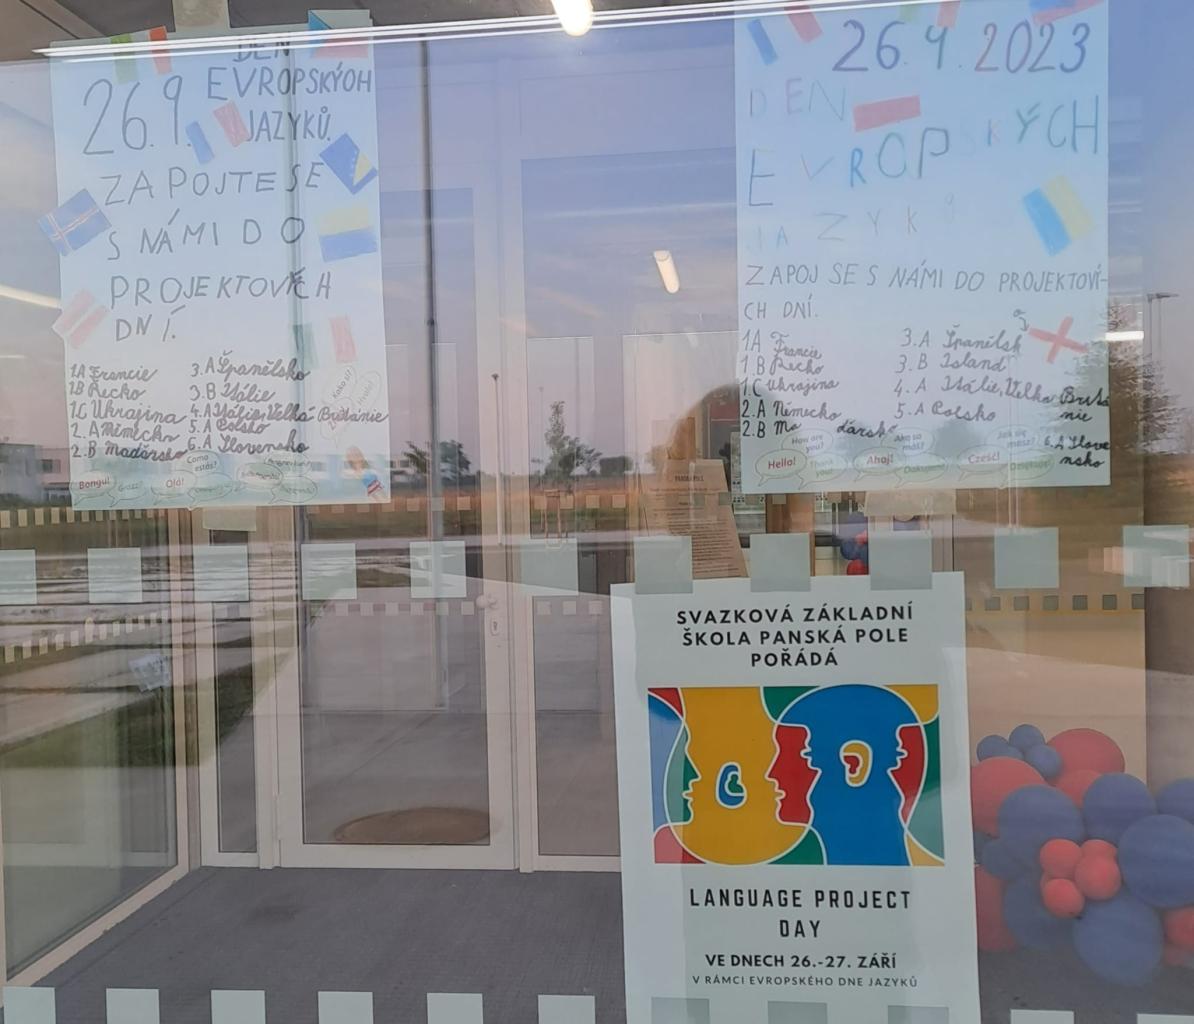 DEN
EVROPSKÝCH
26.9. JAZYKŮ.
ZAPOJTE SE
S NÁMI DO
PROJEKTOVÝCH
DNÍ.
1A Francie
1B Řecko
1C Ukrajina
2.A Německo
2.B Maďarsko
3.A Španělsko
3.B Itálie
4.A Itálie, Velká Británie
5.A Polsko
6.A Slovensko
Como
estás?
Olá!
26.9.2023
DEN
EVROPSKÝCH
JAZYKŮ
ZAPOJ SE S NÁMI DO PROJEKTOVÝ-
CH DNÍ.
1A Francie
1.B Řecko
1.C Ukrajina
2.A Německo
2.B Ma ďarsko
3.A Španělsk
3.B Island
4.A Itálie, Velká Britá
nie
5.A Polsko
6.A Slove
nsko
How are
you?
Hello!
Thank
you!
Ako sa
máš?
Ahoj!
Ďakujem!
Jak się
masz?
Cześć!
Dziękuję!
SVAZKOVÁ ZÁKLADNÍ
ŠKOLA PANSKÁ POLE
POŘÁDÁ
LANGUAGE PROJECT
DAY
VE DNECH 26.-27. ZÁŘÍ
V RÁMCI EVROPSKÉHO DNE JAZYKŮ